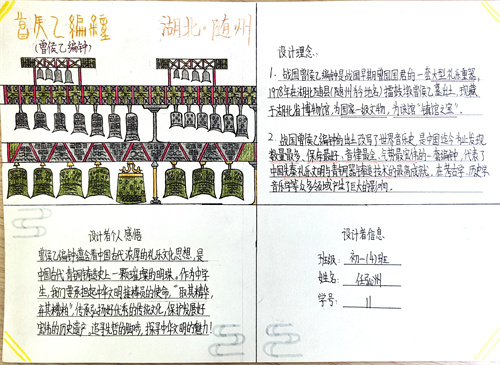 曾侯乙编钟
(曾侯乙编钟)
湖北·随州
设计理念:
1、战国曾侯乙编钟是战国早期曾国国君的一套大型礼乐重器,
1978年在湖北随县(随州市今地名)擂鼓墩曾侯乙墓出土,现藏
于湖北省博物馆,为国家一级文物,为该馆"镇馆之宝"。
2、战国曾侯乙编钟的出土改写了世界音乐史,是中国迄今为止发现
数量最多、保存最好、音律最全、气势最宏伟的一套编钟,代表了
中国先秦礼乐文明与青铜器铸造技术的最高成就,在考古学、历史学、
音乐学等众多领域产生了巨大的影响。
设计者个人感悟
曾侯乙编钟蕴含着中国古代浓厚的礼乐文化思想,是
中国古代青铜铸造史上一颗璀璨的明珠。作为中学
生,我们要承担起中华文明接棒员的使命,"取其精华,
弃其糟粕",传承发扬好优秀的传统文化,保护发展好
宝贵的历史遗产。追寻先哲的脚步,探寻中华文明的魅力!
设计者信息
班级:初一(4)班
姓名:任弘洲
学号:11